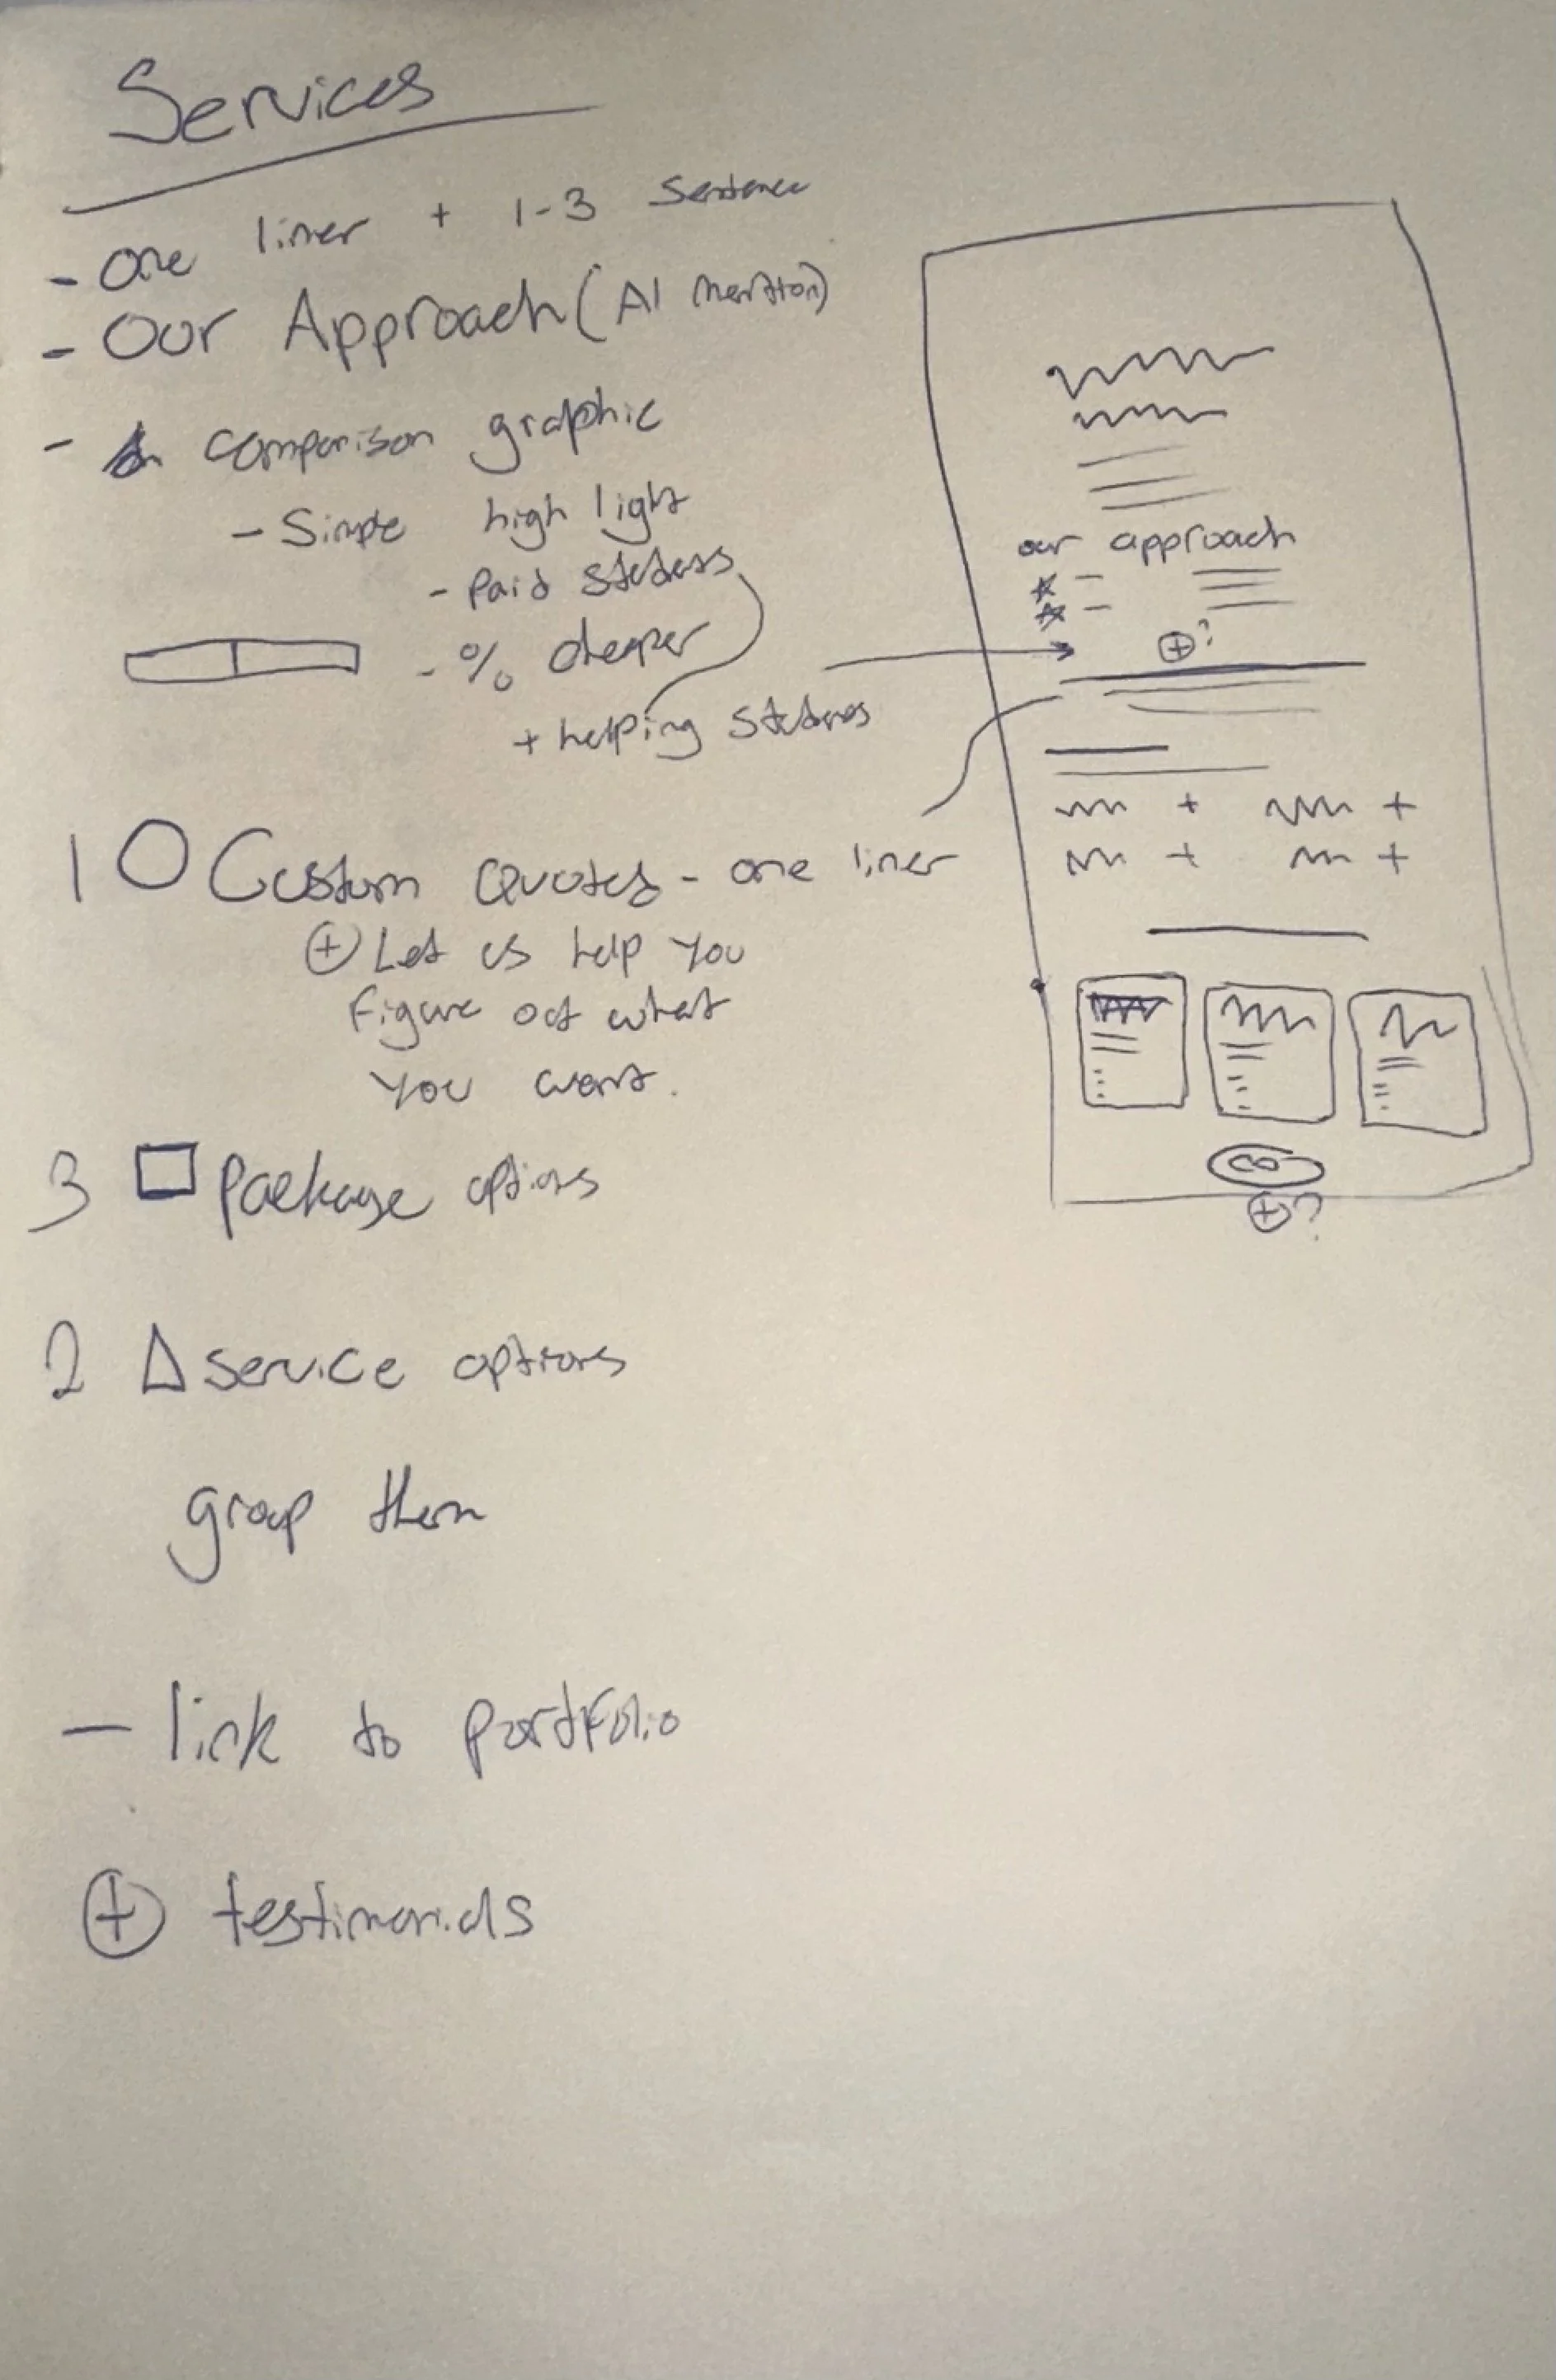 Services
- One liner + 1-3 Sentence
- Our Approach (AI mention)
- comparison graphic
- Simple high light
- Paid students
- % cheaper
+ helping students
1 Custom Quotes - one liner
+ Let us help you
figure out what
you want.
3 package options
2 service options
group them
- link to portfolio
+ testimonials
our approach
+?
+ +
+ +
+?